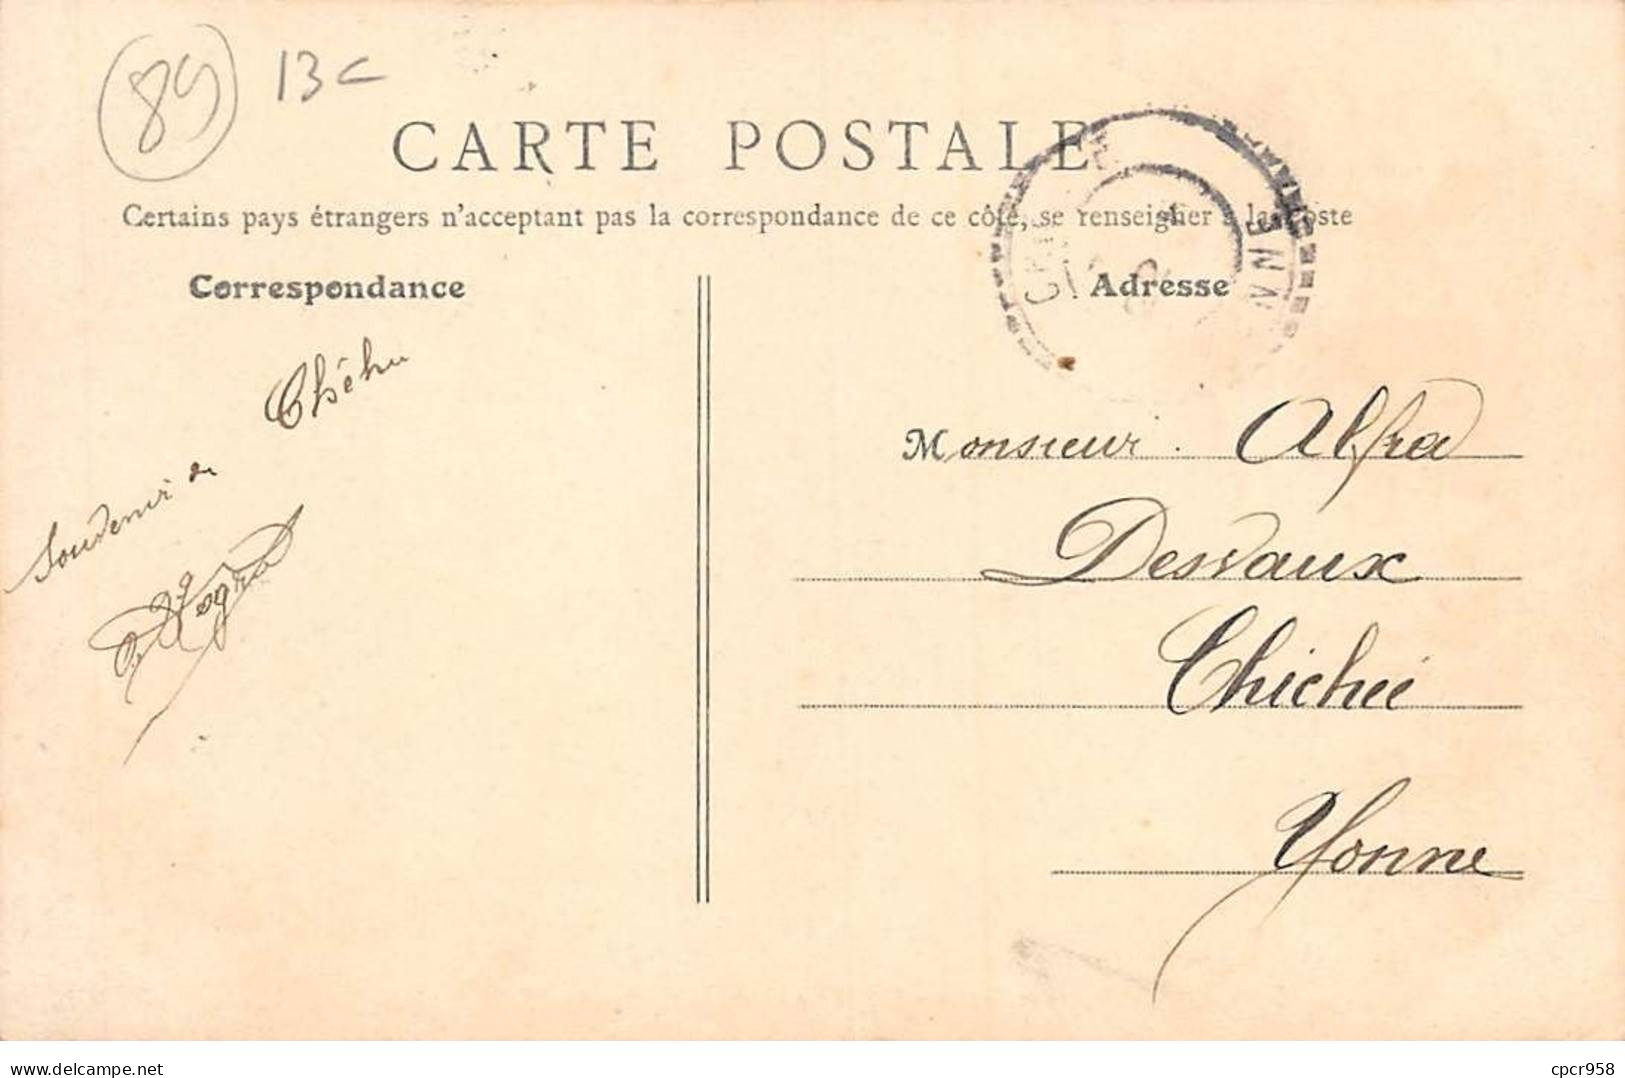 89 13c
CARTE POSTALE
Certains pays étrangers n'acceptant pas la correspondance de ce côté, se renseigner à la Poste
Correspondance
Adresse
Souvenir de
Monsieur. Alfred
Desvaux
Chichée
Yonne
delcampe.net
cpcr958